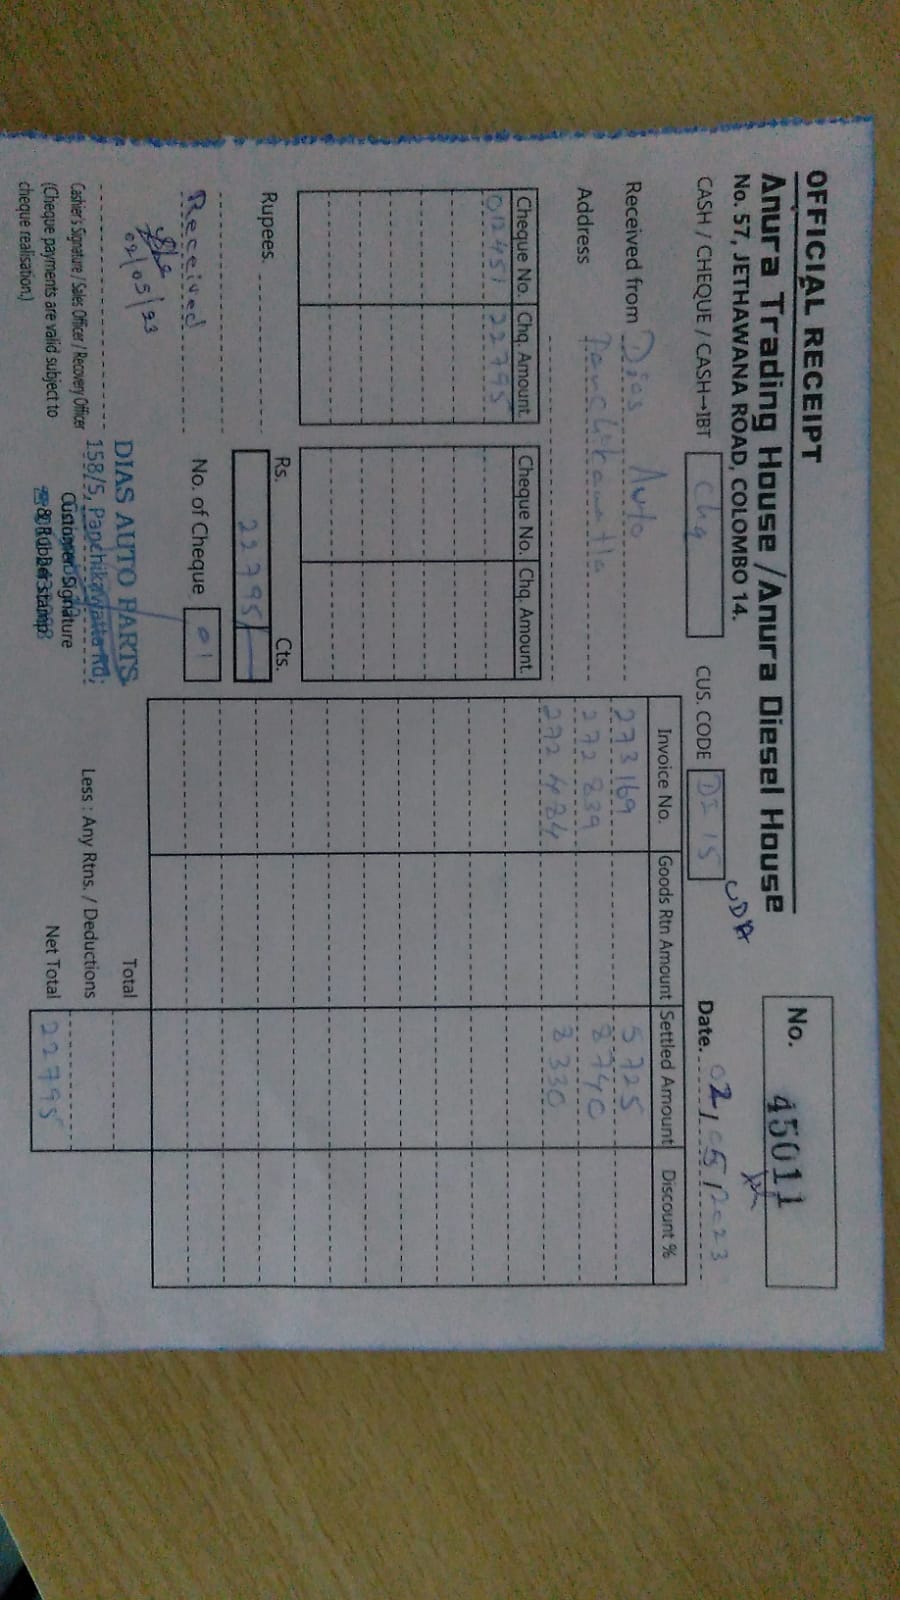 OFFICIAL RECEIPT
Anura Trading House / Anura Diesel House
No. 57, JETHAWANA ROAD, COLOMBO 14.
No. 45011
CASH / CHEQUE / CASH→IBT Chq
CUS. CODE DI 15
CDA
Date. 02/05/2023
Received from Dias Auto
Address
Cheque No. Chq. Amount. Cheque No. Chq. Amount.
012451 22795
Invoice No. Goods Rtn Amount Settled Amount Discount %
273169 5725
272839 8740
272484 8330
Rupees.
Rs. Cts.
22795/-
Received
No. of Cheque 01
02/05/23
DIAS AUTO PARTS
158/5, Panchikawatta Rd,
Cashier's Signature / Sales Officer / Recovery Officer
(Cheque payments are valid subject to
cheque realisation.)
Customer Signature
& Rubber stamp
Total
Less : Any Rtns. / Deductions
Net Total 22795